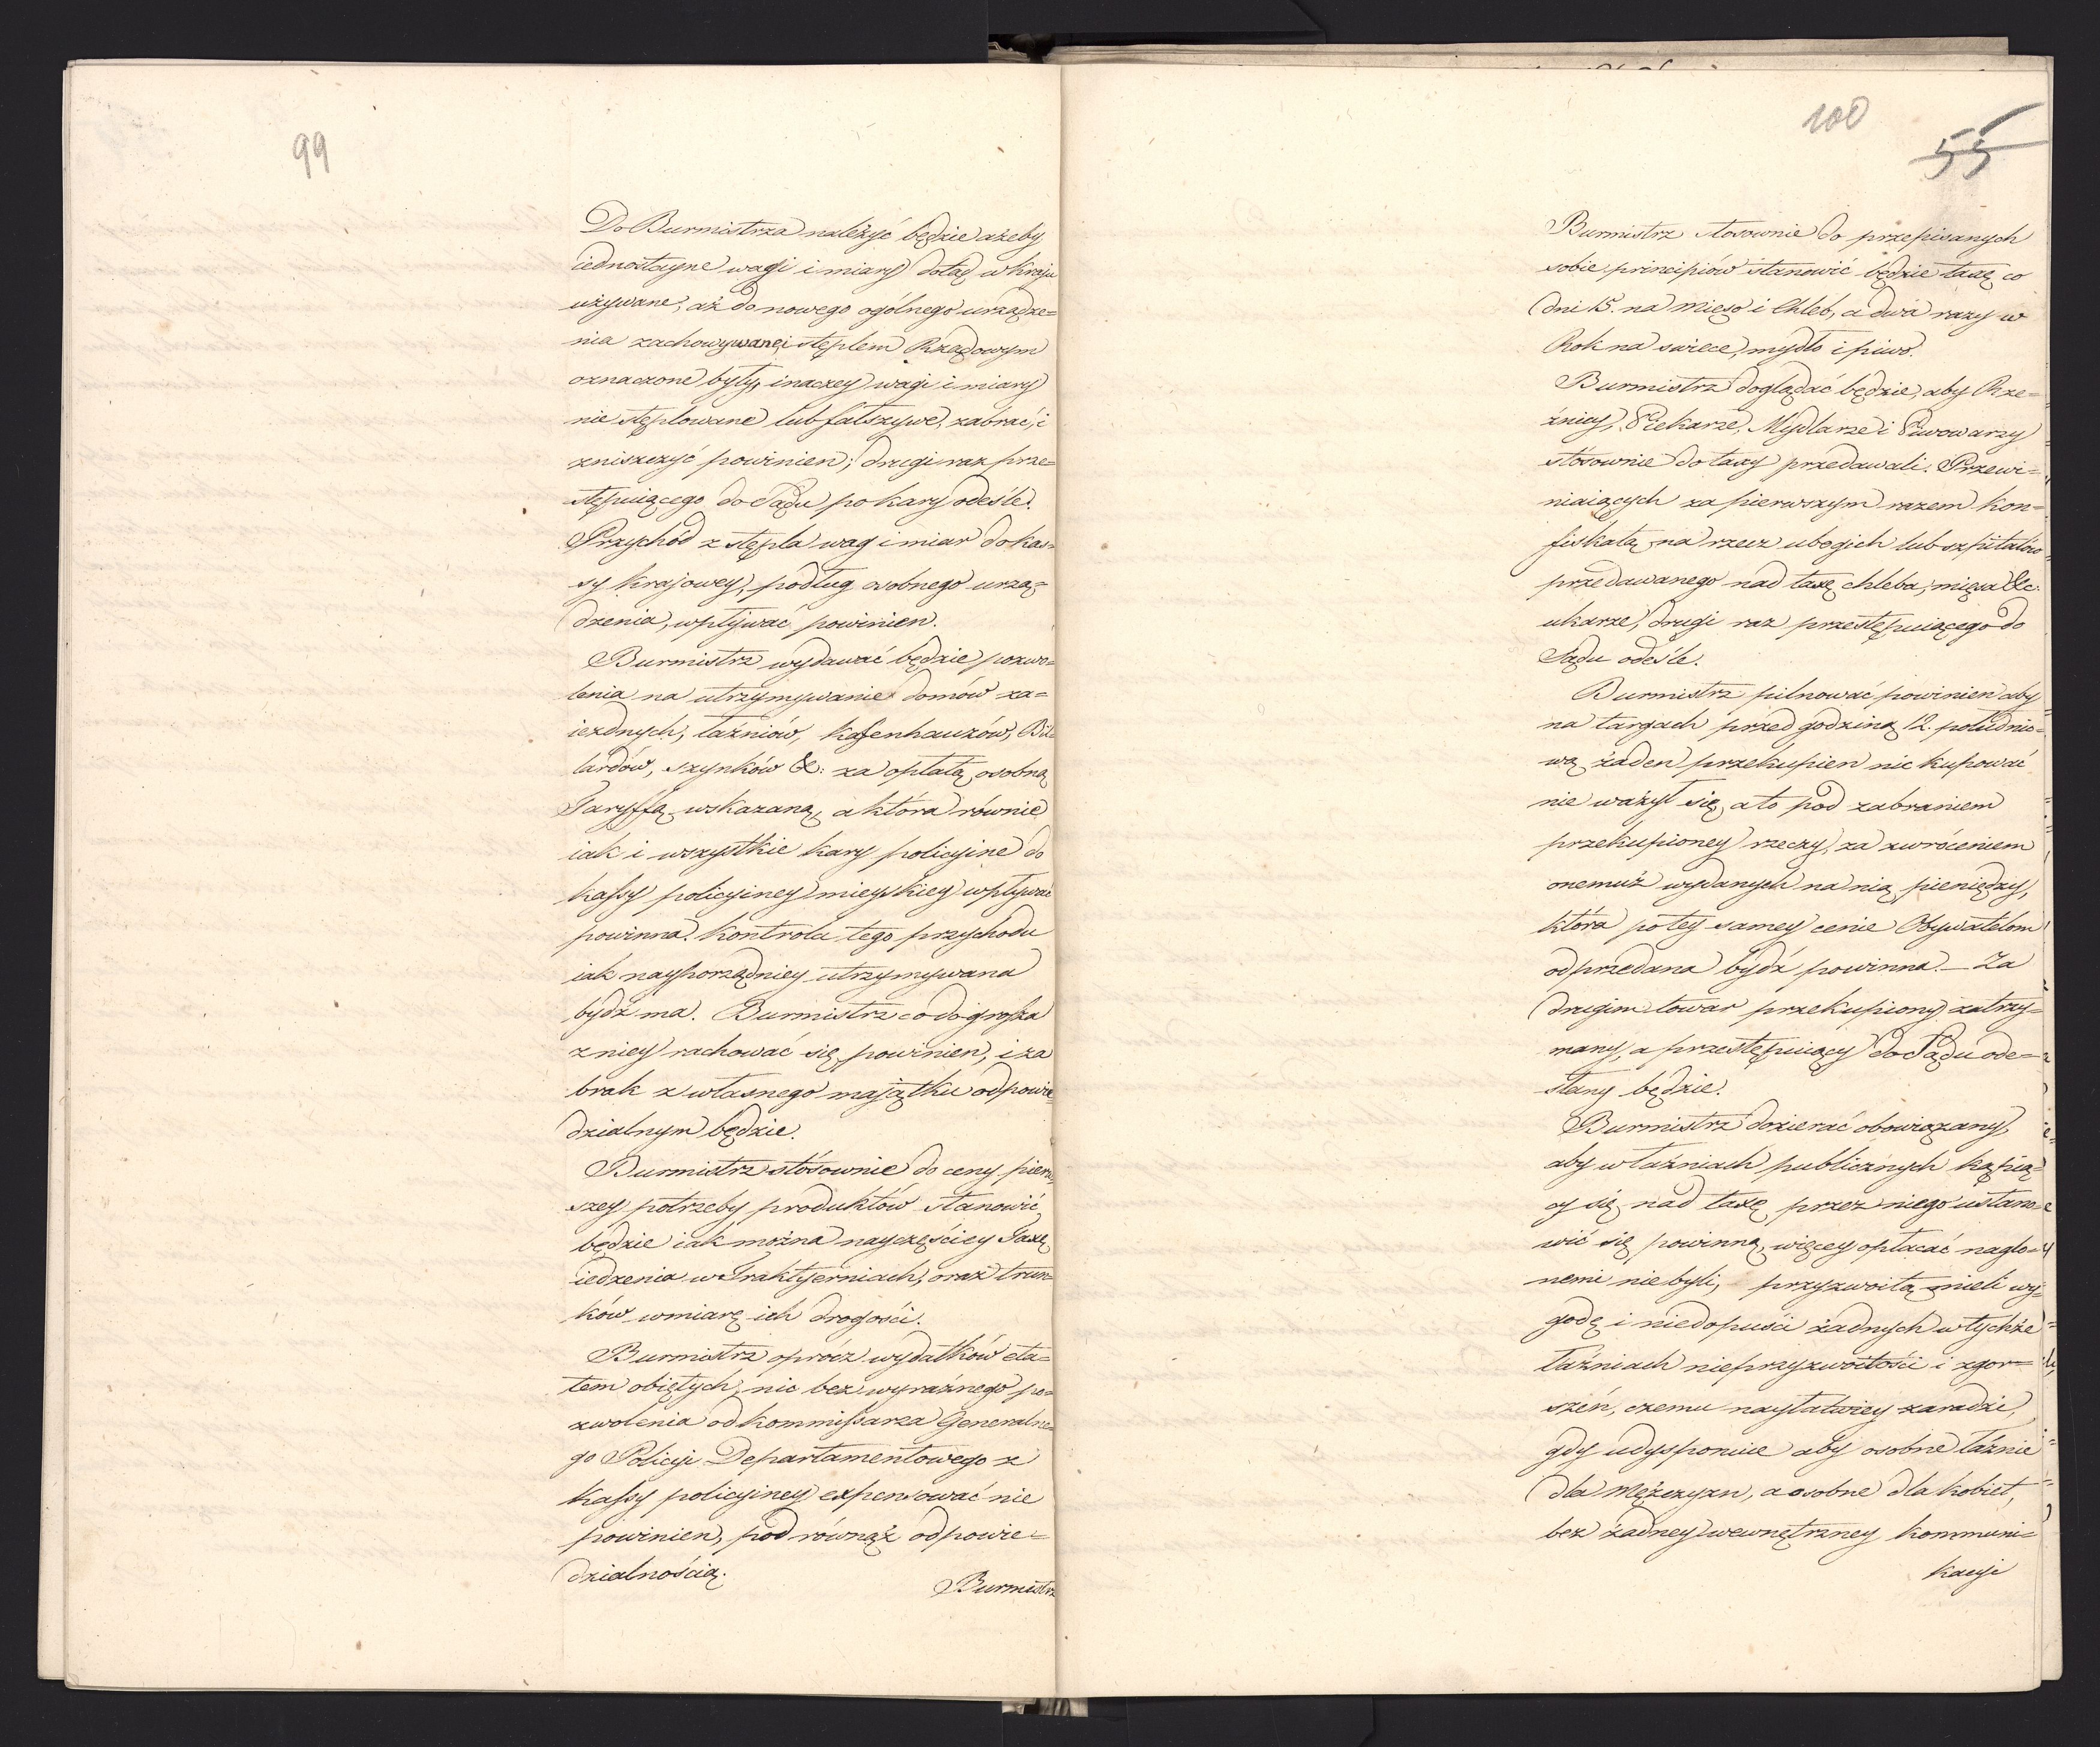 99
Do Burmistrza należyć będzie ażeby
iednostayne wagi i miary dotąd w kraju
używane, aż do nowego ogólnego urządze=
nia zachowywane, i stęplem Rządowym
oznaczone były, inaczey wagi i miary
nie stęplowane lub fałszywe, zabrać, i
zniszczyć powinien; drugi raz prze=
stępuiącego do Sądu po kary odeśle.
Przychód z stępla wag i miar do kas=
sy krajowey, podług osobnego urzą=
dzenia, wpływać powinien.
Burmistrz wydawać będzie pozwo=
lenia na utrzymywanie domów za=
iezdnych, łaźniów, kafenhauzów, Bil=
lardów, szynków &: za opłatą osobną
Taryffą wskazaną, a która równie
iak i wszystkie kary policyine do
kassy policyiney mieyskiey wpływać
powinna. Kontrola tego przychodu
iak nayporządniey utrzymywana
bydź ma. Burmistrz co do grosza
z niey rachować się powinien, i za
brak z własnego majątku odpowie=
dzialnym będzie.
Burmistrz stósownie do ceny pierw=
szey potrzeby produktów stanowić
będzie iak można nayczęściey Taxę
iedzenia w Traktyerniach, oraz trun=
ków w miarę ich drogości.
Burmistrz oprócz wydatków eta=
tem obiętych, nic bez wyraźnego po=
zwolenia od Kommissarza Generalne=
go Policyi Departamentowego z
kassy policyiney expensować nie
powinien, pod równąż odpowie=
dzialnością.
Burmistrz
100
55
Burmistrz stosownie do przepisanych
sobie principiów stanowić będzie taxę co
dni 15. na Mięso i Chleb, a dwa razy w
Rok na świece, mydło i piwo.
Burmistrz doglądać będzie, aby Rze=
źnicy, Piekarze, Mydlarze i Piwowarzy
stósownie do taxy przedawali. Przewi=
niaiących za pierwszym razem kon=
fiskatą na rzecz ubogich lub szpitalów
przedawanego nad taxę chleba, mięsa &c.
ukarze, drugi raz przestępuiącego do
Sądu odeśle.
Burmistrz pilnować powinien aby
na targach przed godziną 12. południo=
wą żaden przekupien nic kupować
nie ważył się, a to pod zabraniem
przekupioney rzeczy, za zwróceniem
onemuż wydanych na nią pieniędzy,
która po tey samey cenie Obywatelom
odprzedana bydź powinna. — Za
drugim towar przekupiony zatrzy=
many, a przestępuiący do Sądu ode=
słany będzie.
Burmistrz dozierać obowiązany,
aby w łaźniach publicznych kąpią=
cy się nad taxę przez niego ustano=
wić się powinną, więcey opłacać naglo=
nemi nie byli, przyzwoitą mieli wy=
godę i niedopuści żadnych w tychże
łaźniach nieprzyzwoitości i zgor=
szeń, czemu nayłatwiey zaradzi,
gdy udysponuie aby osobne łaźnie
dla Mężczyzn, a osobne dla kobiet,
bez żadney wewnętrzney kommuni=
kacyi